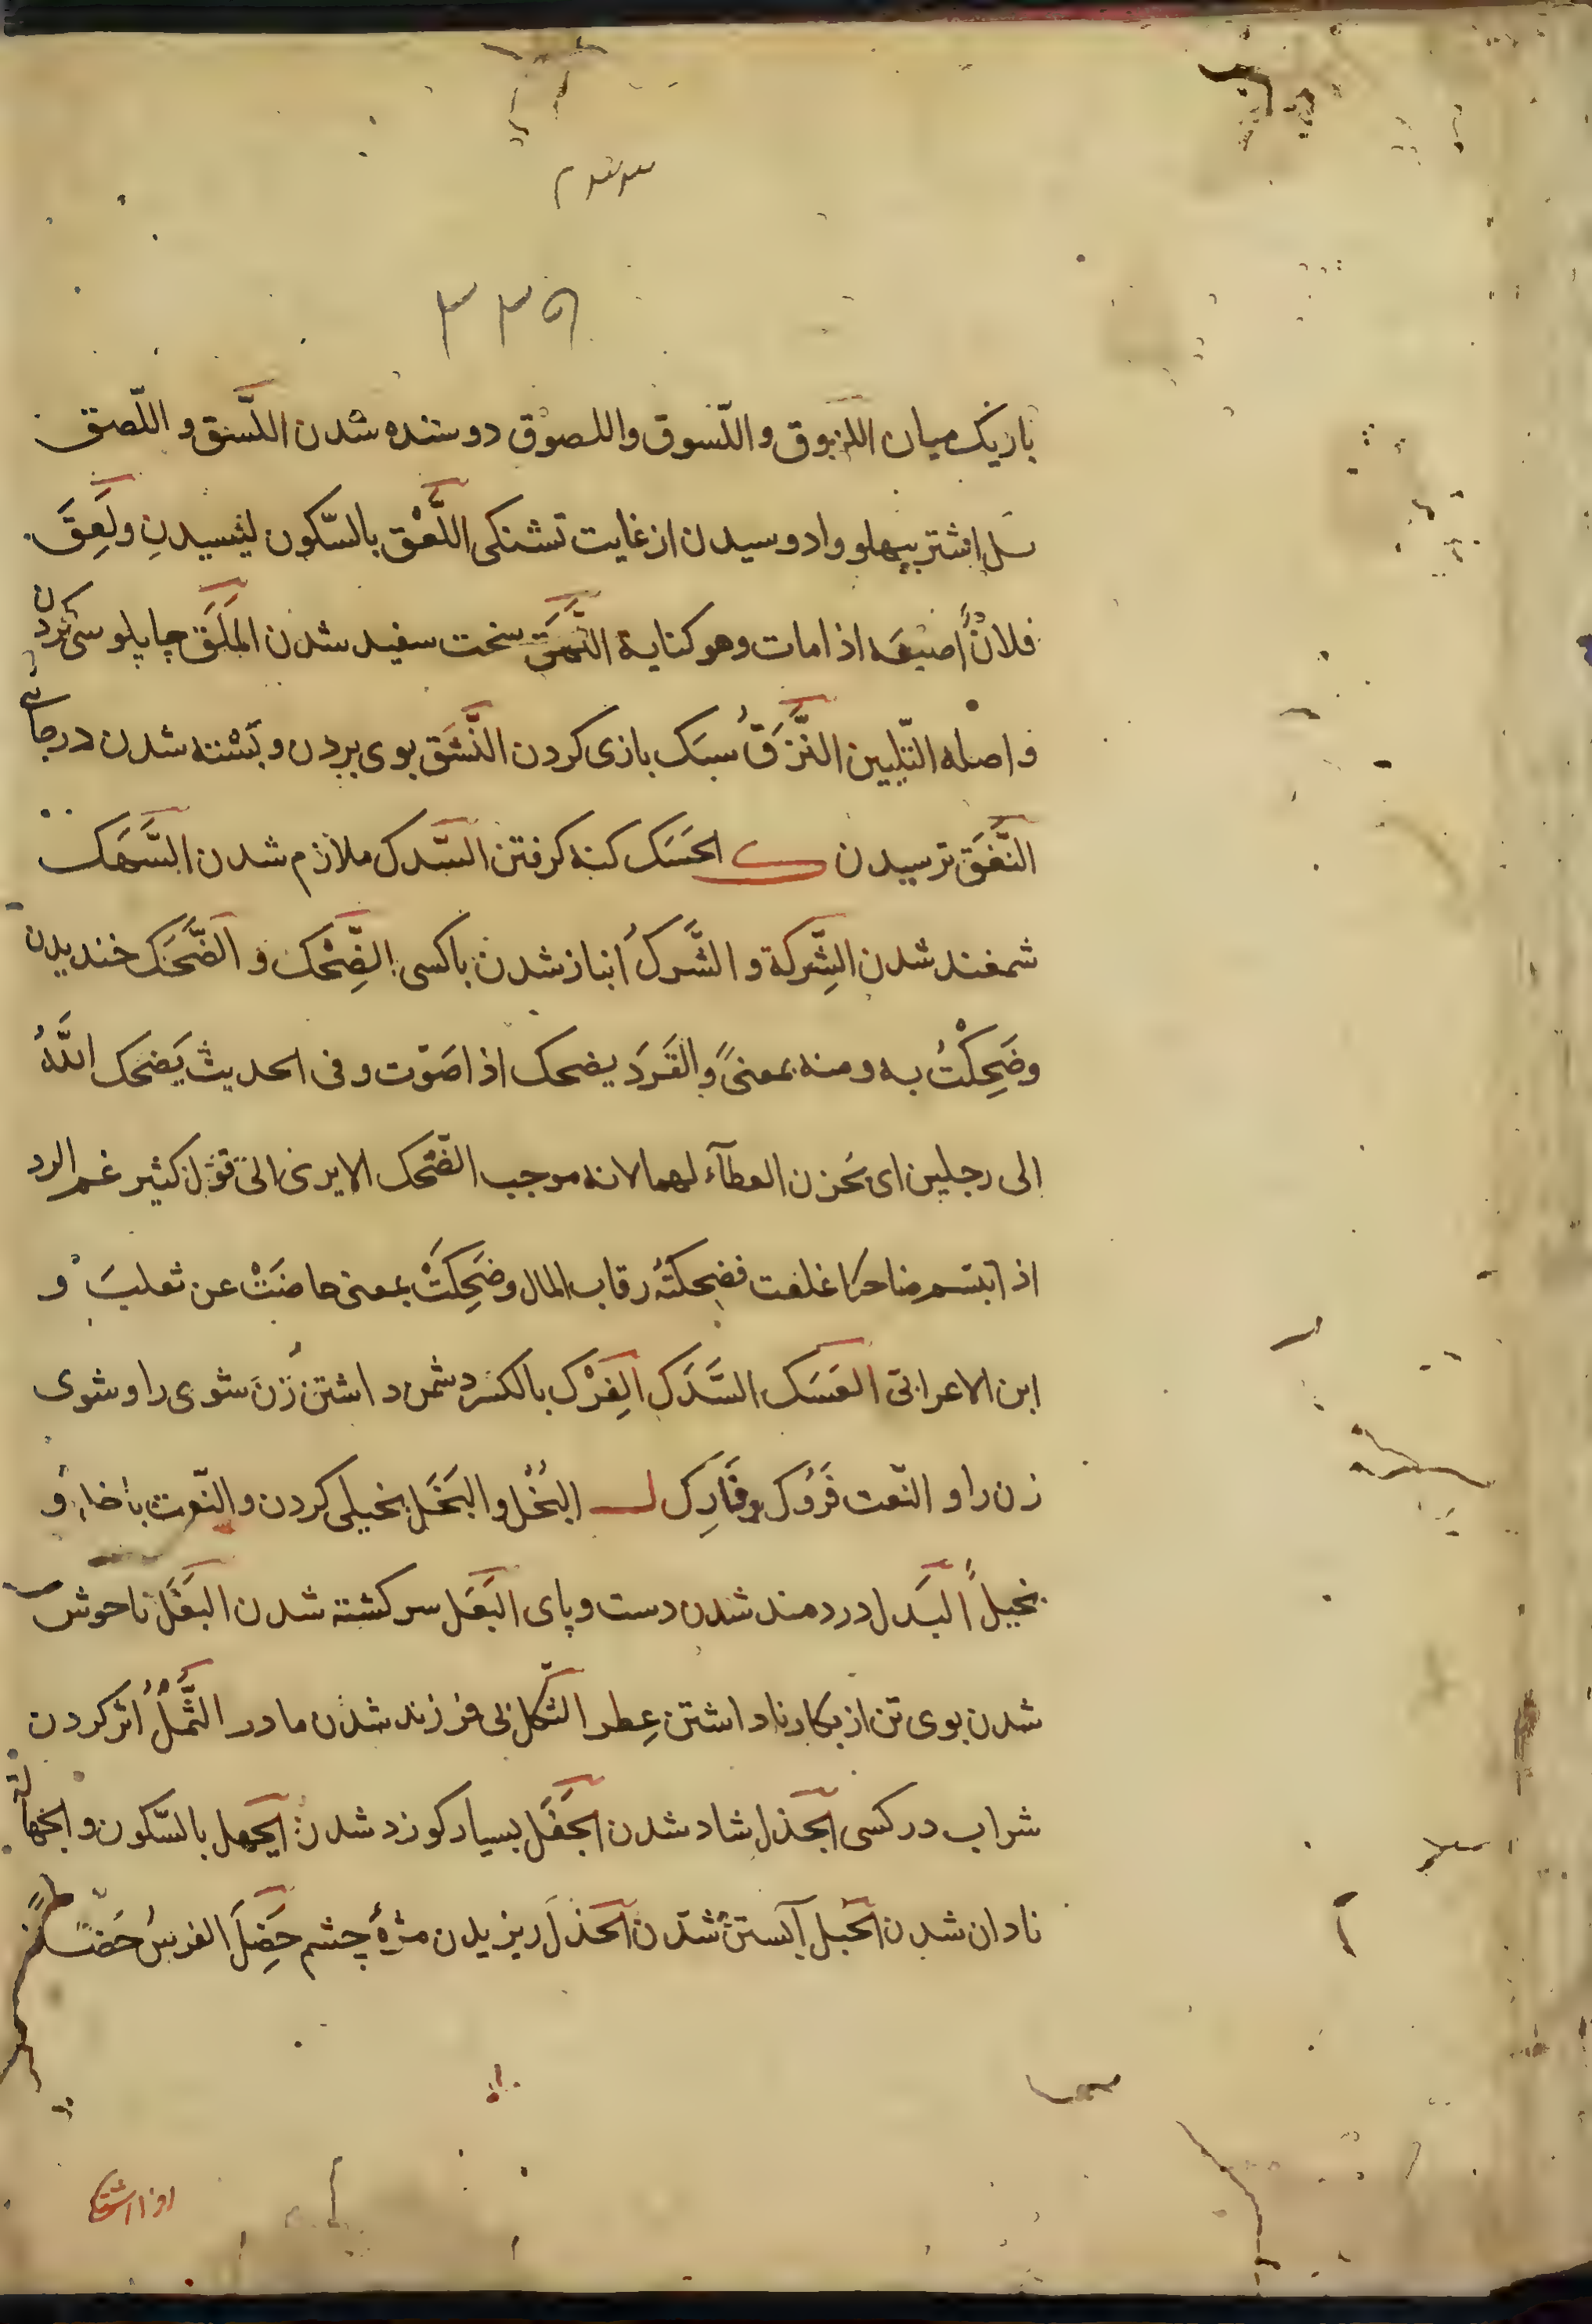 باریک میان اللزوق و اللّسوق واللصوق دوسنده شدن اللَّسَق و اللّصق
سل اشتر بپهلو وادوسیدن از غایت تشنکی اللَّعْق بالسّکون لیسیدنِ ولَعِقَ
فلانٌ اصبعه اذا مات وهو کنایة النَّهَق سخت سفید شدن المَلَق چاپلوسی کردن
و اصله التّلیین النَّزَقُ سبک بازی کردن النَّشَق بوی بردن و بَسْته شدن در جای
النَّفَق ترسیدن ک الحَسَک کنه کرفتن السَّدک ملازم شدن السَّهَک
شمغند شدن الشِّرکة و الشَّرک انباز شدن با کسی الضِّحْک و الضَّحَک خندیدن
وضَحِکْتُ به ومنه بمعنیً والقَرَد یضحک اذا صَوّت و فی الحدیث یَضحک اللَّهُ
الی رجلین ای یُحزن العطآء لهما لانه موجب الضّحک الا یری الی قول کثیر غمر الرد
اذا ابتسم ضاحکا غلقت فضحکتُه رقاب المال وضَحِکَتْ بمعنی حاضَتْ عن ثعلب و
ابن الاعرابی العَسَک السَّدَک الفِرْک بالکسر دشمن داشتن زَن شوی را و شوی
زن را و النّعت فَرُوک و فَارِک ل البُخْل و البَخَل بخیلی کردن و النّعت باخل و
بخیلٌ البَدل دردمند شدن دست و پای البَعَل سرکشته شدن التَفَل ناخوش
شدن بوی تن از بکار ناداشتن عِطر الثکل بی فرزند شدن مادر الثَّمَلُ اثر کردن
شراب در کسی الجَذل شاد شدن الجَفَل بسیار کو زد شدن الجهل بالسّکون و الجهالة
نادان شدن الحَبل آبستن شدن الحَذل ریزیدن مژهٔ چشم حَضِلَ الفرسُ